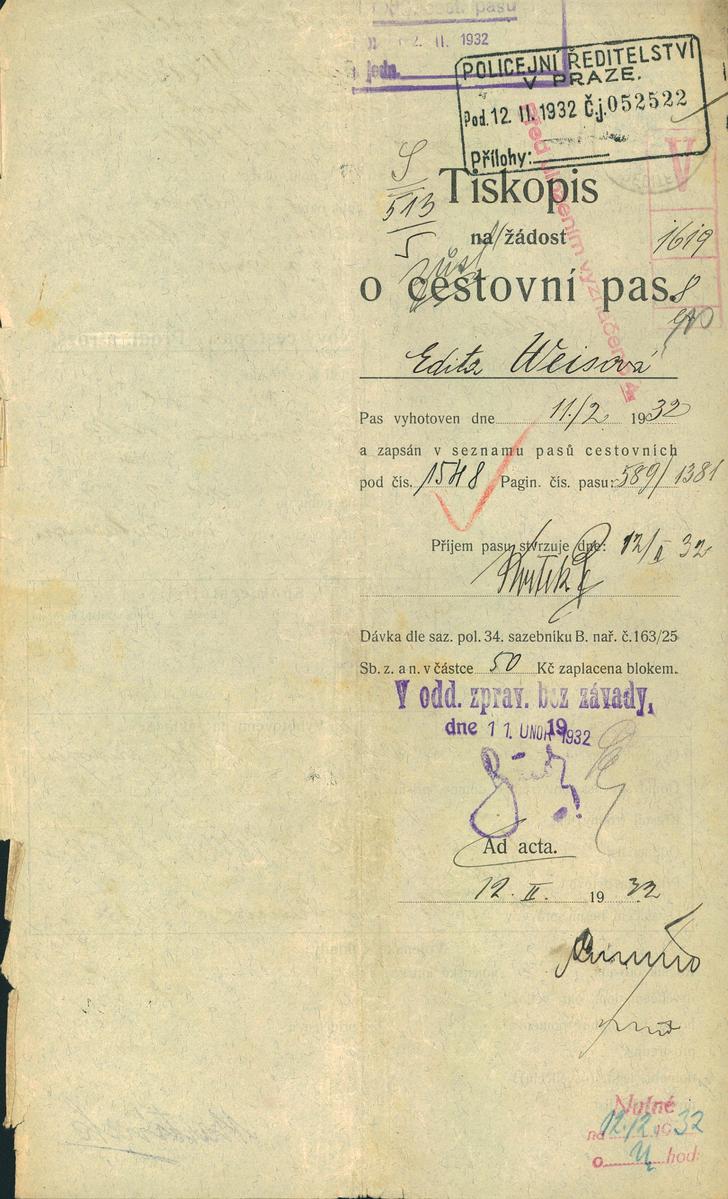 pasu
2. II. 1932
jedn.
POLICEJNÍ ŘEDITELSTVÍ
V PRAZE.
Pod. 12. II. 1932 Č.j. 052522
Přílohy:
V
S
513
5
Tiskopis
na žádost
1619
o cestovní pas.
8
Edita Weisová
Pas vyhotoven dne 11./2. 1932
a zapsán v seznamu pasů cestovních
pod čís. 1548 Pagin. čís. pasu: 589/1381
Příjem pasu stvrzuje dne: 12/II 32
Dávka dle saz. pol. 34. sazebníku B. nař. č. 163/25
Sb. z. a n. v částce 50 Kč zaplacena blokem.
V odd. zprav. bez závady,
dne 11. ÚNOR 1932
Ad acta.
12. II. 1932
Nutné
na 12./2. 1932
o hod: